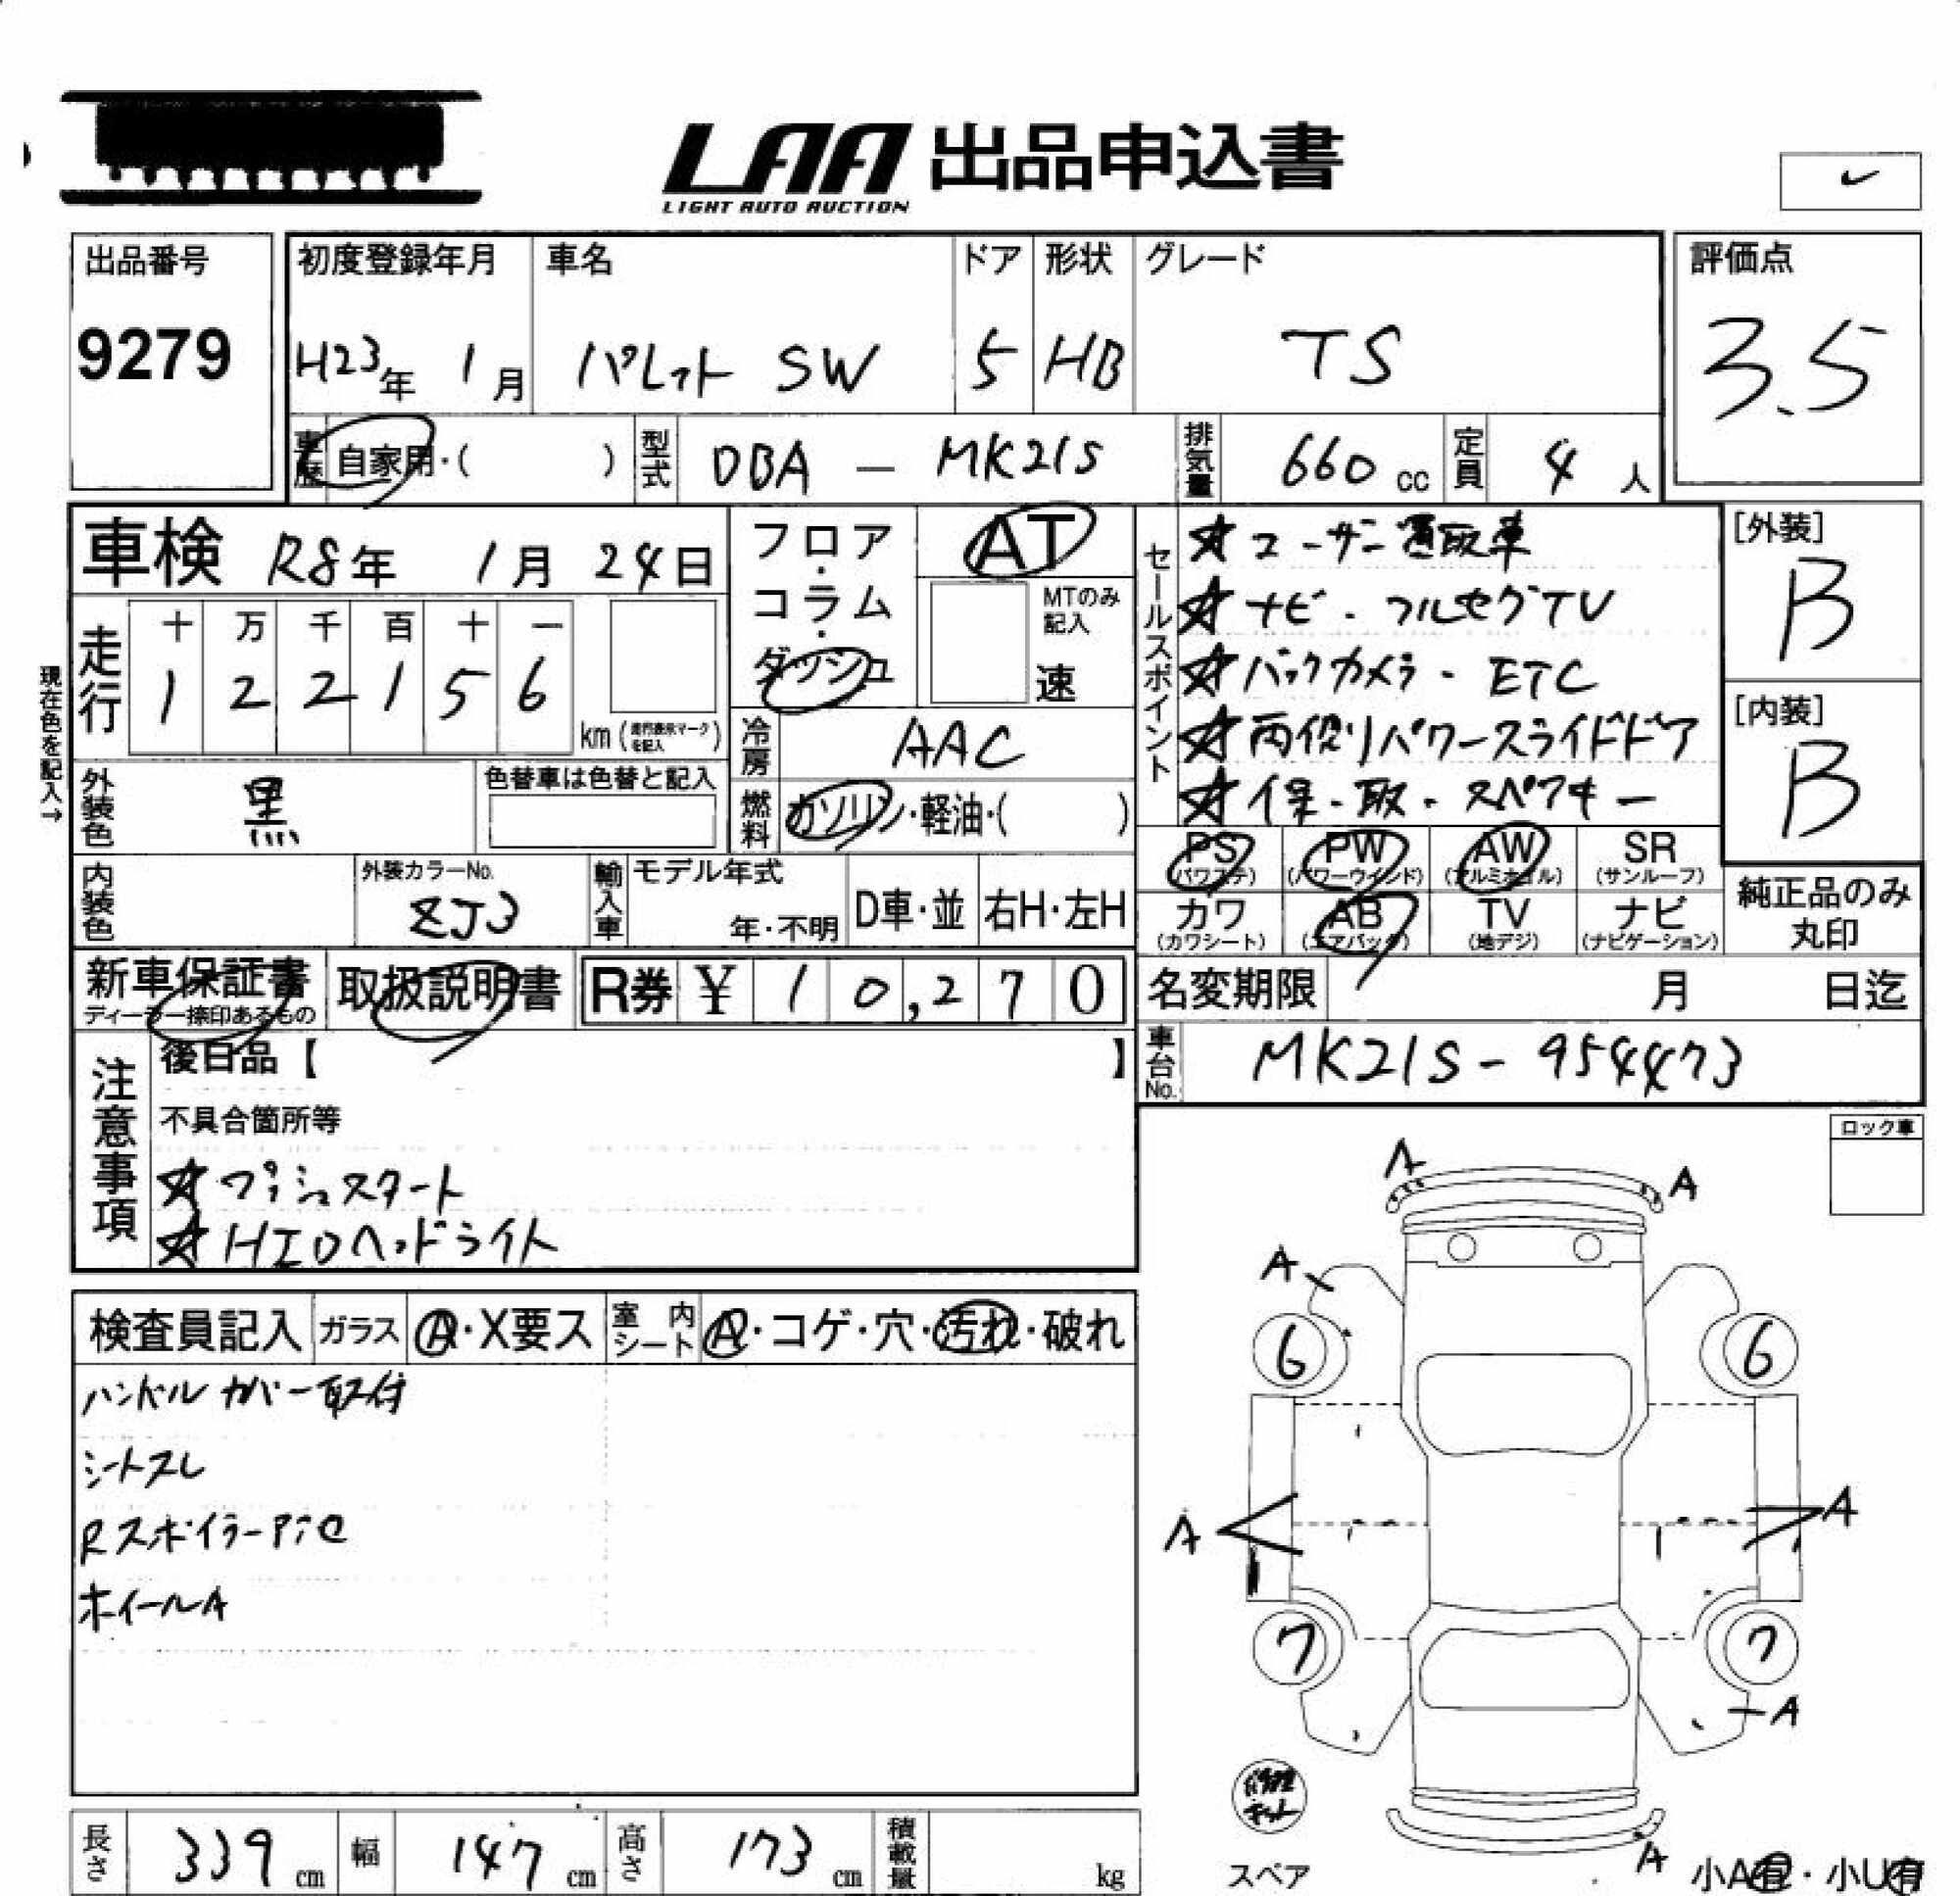 LAA 出品申込書
LIGHT AUTO AUCTION
出品番号
9279
初度登録年月
H23年 1月
車名
パレット SW
ドア
5
形状
HB
グレード
TS
評価点
3.5
車歴 自家用・( )
型式 DBA - MK21S
排気量 660 cc
定員 4 人
車検 R8年 1月 24日
フロア・コラム・ダッシュ
AT
MTのみ記入
速
現在色を記入→
走行
十 万 千 百 十 一
1 2 2 1 5 6
km
冷房 AAC
燃料 ガソリン・軽油・( )
外装色 黒
色替車は色替と記入
内装色
外装カラーNo.
ZJ3
輸入車
モデル年式
年・不明
D車・並
右H・左H
セールスポイント
★ユーザー買取車
★ナビ・フルセグTV
★バックカメラ・ETC
★両側パワースライドドア
★保・取・スペアキー
[外装]
B
[内装]
B
PS (パワステ)
PW (パワーウインド)
AW (アルミホイル)
SR (サンルーフ)
カワ (カワシート)
AB (エアバック)
TV (地デジ)
ナビ (ナビゲーション)
純正品のみ丸印
新車保証書
ディーラー捺印あるもの
取扱説明書
R券 ¥ 10,270
名変期限 月 日迄
車台No. MK21S-954473
注意事項
後日品【 】
不具合箇所等
★プッシュスタート
★HIDヘッドライト
ロック車
検査員記入
ガラス Ⓐ・X要ス
室内シート Ⓐ・コゲ・穴・汚れ・破れ
ハンドルカバー取付
シートスレ
RスポイラーA
ホイールA
A A
A
6 6
A A
7 7
A
修理キット
スペア
A
小A有・小U有
長さ 339 cm
幅 147 cm
高さ 173 cm
積載量 kg